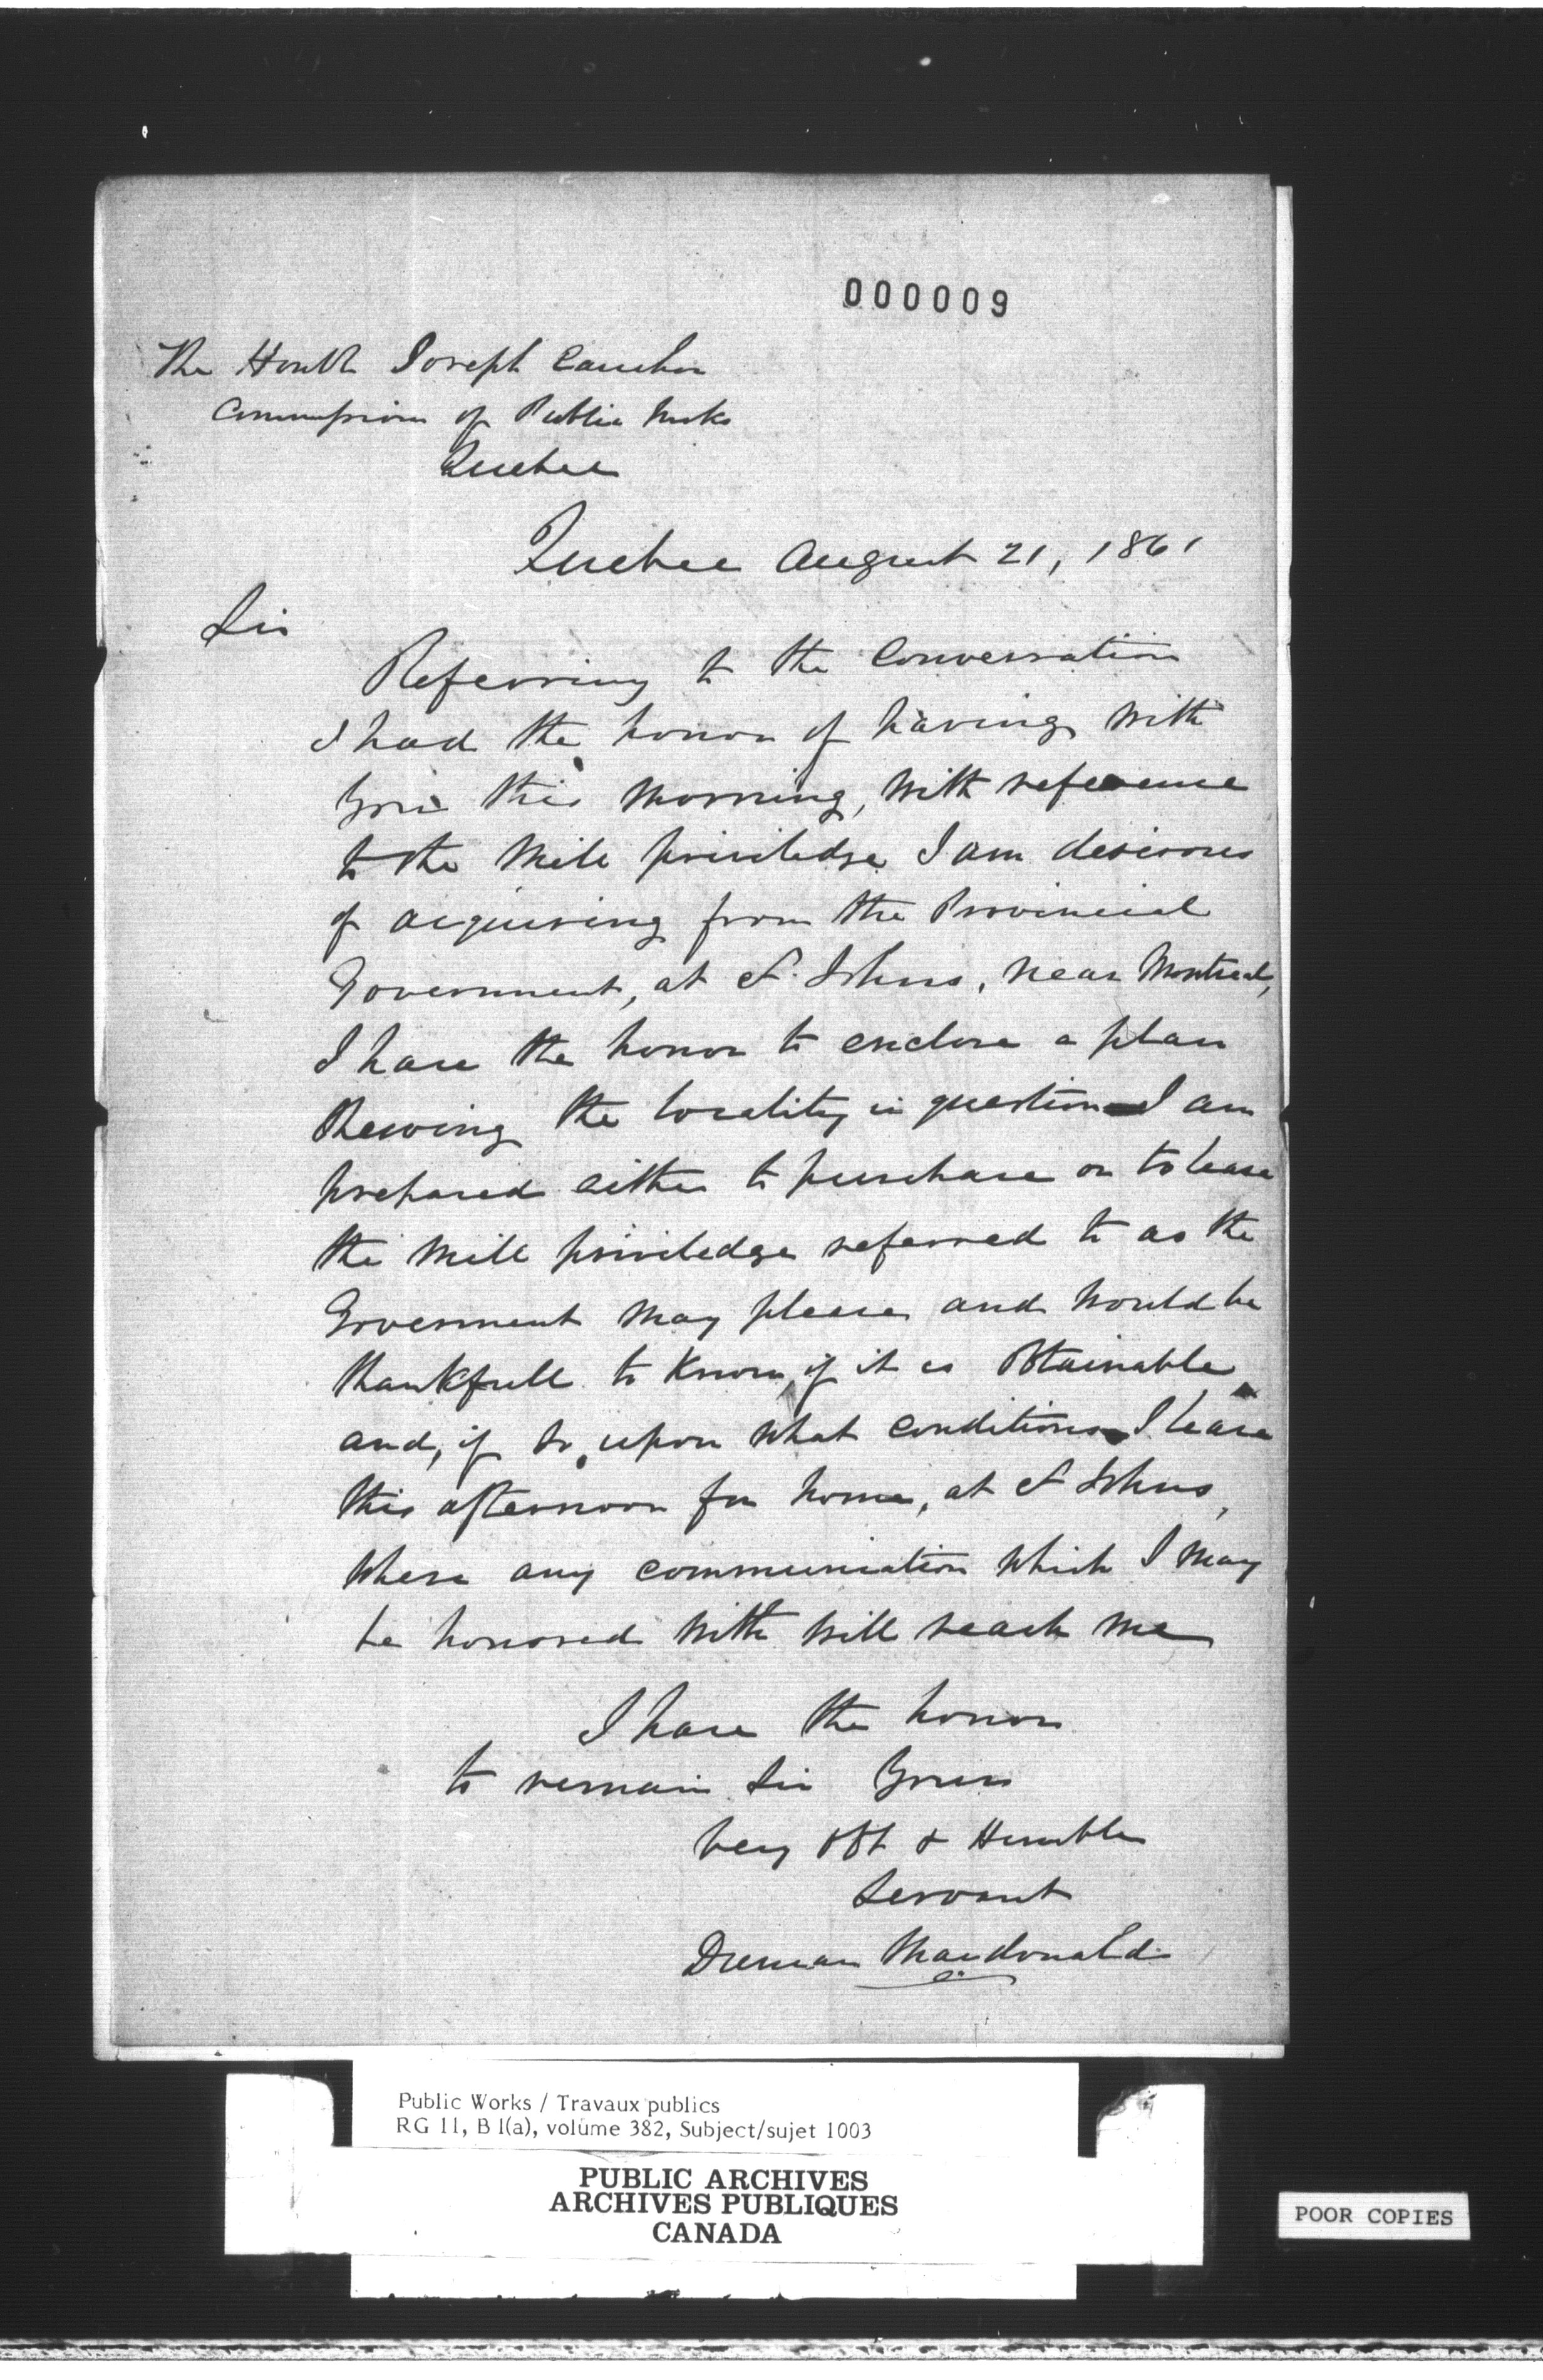 000009
The Honble Joseph Cauchon
Commissioner of Public Works
Quebec
Quebec August 21, 1861
Sir
Referring to the Conversation
I had the honor of having with
You this morning, with reference
to the Mill priviledge I am desirous
of acquiring from the Provincial
Government, at St. Johns, near Montreal,
I have the honor to enclose a plan
Shewing the locality in question - I am
prepared either to purchase or to lease
the Mill priviledge referred to as the
Government may please and would be
thankfull to Know, if it is Obtainable
and, if so, upon what conditions - I leave
this afternoon for home, at St Johns,
where any communication which I may
be honored with will reach me
I have the honor
to remain Sir Yours
Very Obt & Humble
Servant
Duncan Macdonald
Public Works / Travaux publics
RG 11, B 1(a), volume 382, Subject/sujet 1003
PUBLIC ARCHIVES
ARCHIVES PUBLIQUES
CANADA
POOR COPIES